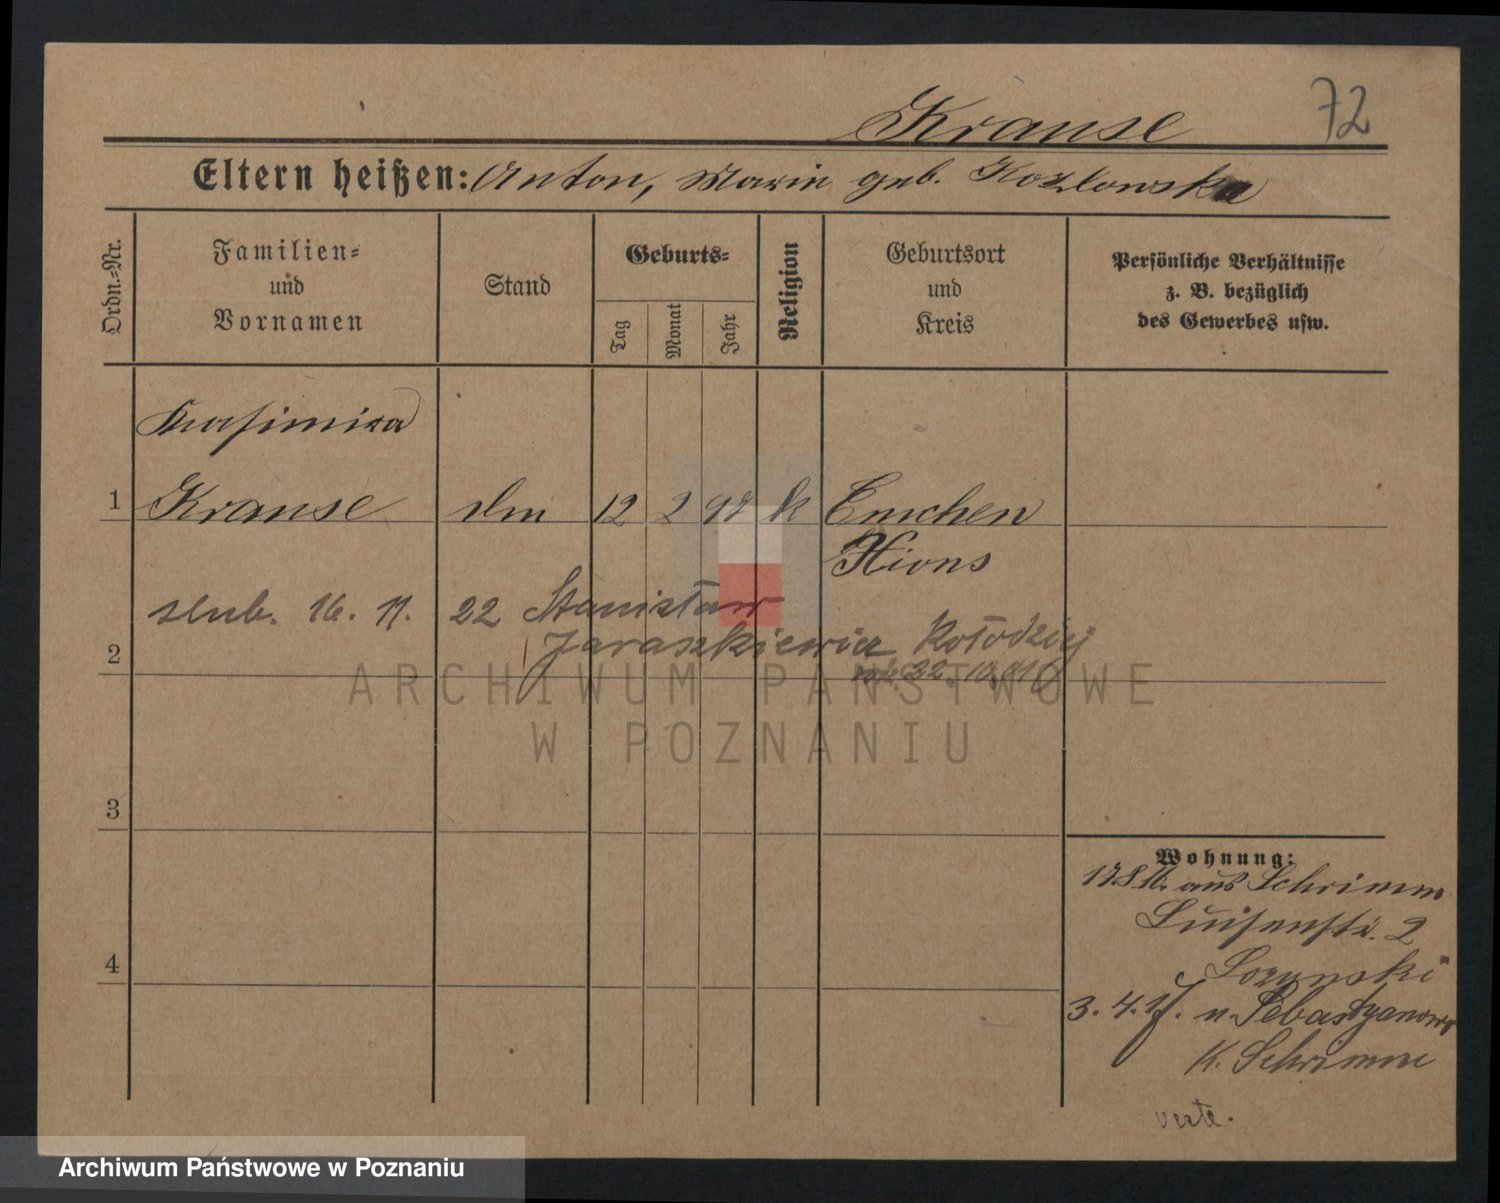 Krause
72
Eltern heißen: Anton, Marie geb. Kozlowska
Ordn.-Nr.
Familien-
und
Vornamen
Stand
Geburts-
Tag
Monat
Jahr
Religion
Geburtsort
und
Kreis
Persönliche Verhältnisse
z. B. bezüglich
des Gewerbes usw.
Kasimira
1 Krause 12 2 97 k Emchen
Xions
slub. 16. 11. 22 Stanisław
2 Jaraszkiewicz Kołodziej
3
4
Wohnung:
aus Schrimm
Luisenstr. 2
3. 4. 17. n. Sebastyanowo
K. Schrimm
verte.
ARCHIWUM PAŃSTWOWE
W POZNANIU
Archiwum Państwowe w Poznaniu